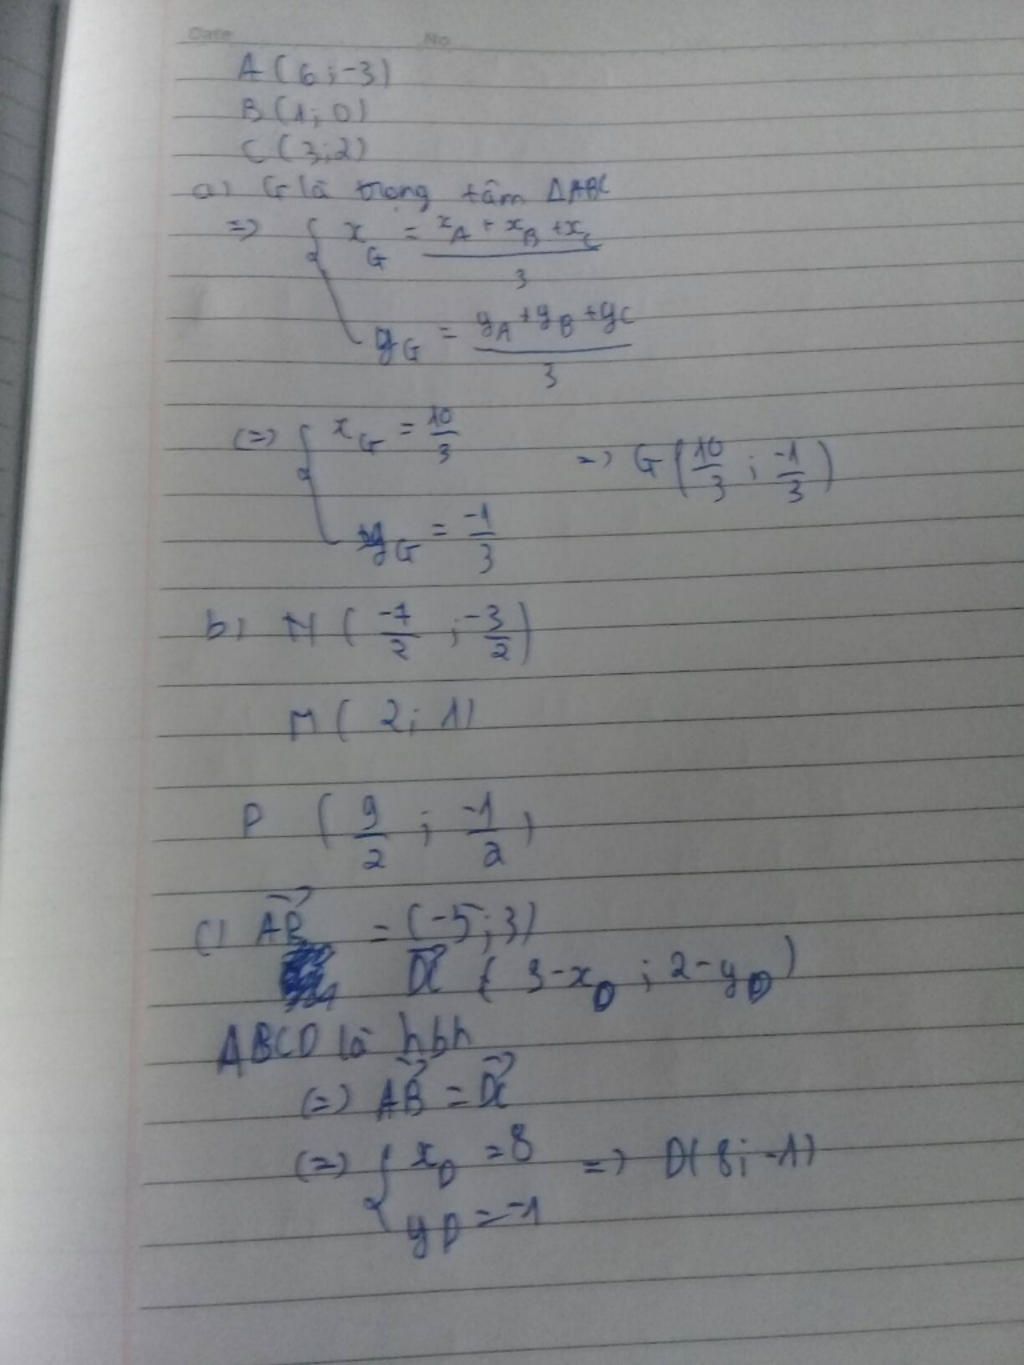 Date No
A(6;-3)
B(1;0)
C(3;2)
a) G là trọng tâm ΔABC
=> { x_G = (x_A + x_B + x_C)/3
y_G = (y_A + y_B + y_C)/3
(=) { x_G = 10/3 => G(10/3 ; -1/3)
y_G = -1/3
b) M ( -7/2 ; -3/2 )
M ( 2; 1)
P ( 9/2 ; -1/2 )
c) AB→ = (-5;3)
DC→ ( 3-x_D ; 2-y_D )
ABCD là hbh
(=) AB→ = DC→
(=) { x_D = 8 => D(8; -1)
y_D = -1